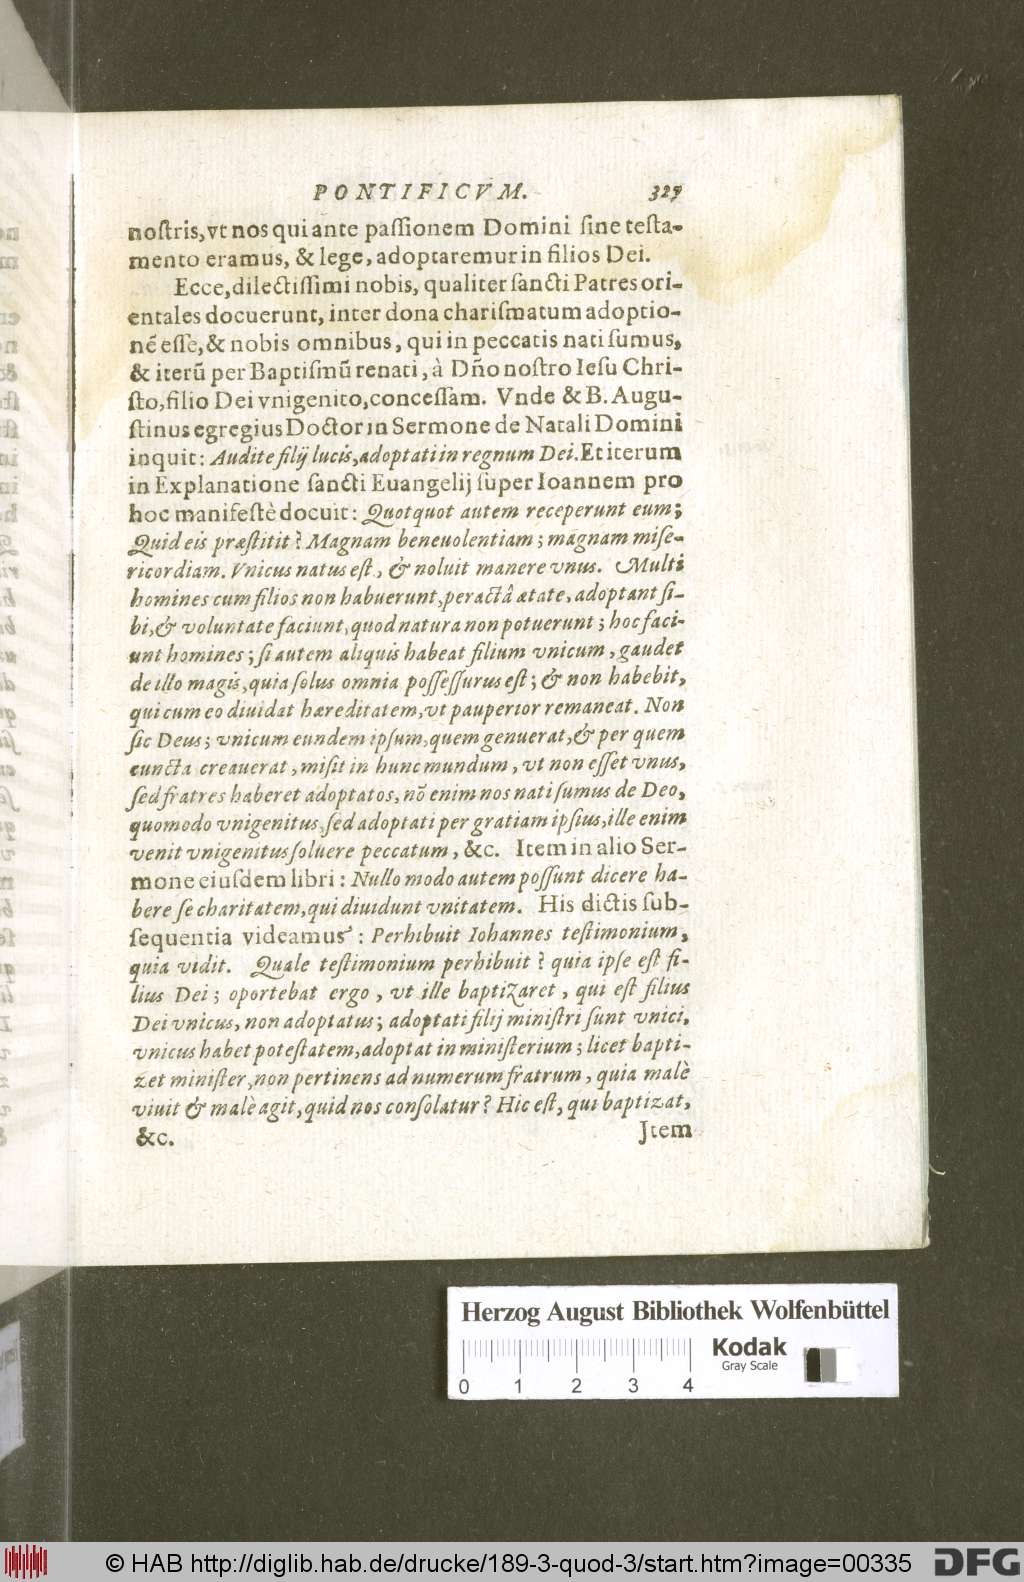 PONTIFICVM. 327
noſtris, vt nos qui ante paſſionem Domini ſine teſta-
mento eramus, & lege, adoptaremur in filios Dei.
Ecce, dilectiſſimi nobis, qualiter ſancti Patres ori-
entales docuerunt, inter dona chariſmatum adoptio-
nẽ eſſe, & nobis omnibus, qui in peccatis nati ſumus,
& iterũ per Baptiſmũ renati, à Dño noſtro Ieſu Chri-
ſto, filio Dei vnigenito, conceſſam. Vnde & B. Augu-
ſtinus egregius Doctor in Sermone de Natali Domini
inquit: Audite filij lucis, adoptati in regnum Dei. Et iterum
in Explanatione ſancti Euangelij ſuper Ioannem pro
hoc manifeſtè docuit: Quotquot autem receperunt eum;
Quid eis præſtitit? Magnam beneuolentiam; magnam miſe-
ricordiam. Vnicus natus eſt, & noluit manere vnus. Multi
homines cum filios non habuerunt, peractâ ætate, adoptant ſi-
bi, & voluntate faciunt, quod natura non potuerunt; hoc faci-
unt homines; ſi autem aliquis habeat filium vnicum, gaudet
de illo magis, quia ſolus omnia poſſeſſurus eſt; & non habebit,
qui cum eo diuidat hæreditatem, vt pauperior remaneat. Non
ſic Deus; vnicum eundem ipſum, quem genuerat, & per quem
cuncta creauerat, miſit in hunc mundum, vt non eſſet vnus,
ſed fratres haberet adoptatos, nõ enim nos nati ſumus de Deo,
quomodo vnigenitus, ſed adoptati per gratiam ipſius, ille enim
venit vnigenitus ſoluere peccatum, &c. Item in alio Ser-
mone eiuſdem libri: Nullo modo autem poſſunt dicere ha-
bere ſe charitatem, qui diuidunt vnitatem. His dictis ſub-
ſequentia videamus: Perhibuit Iohannes teſtimonium,
quia vidit. Quale teſtimonium perhibuit? quia ipſe eſt fi-
lius Dei; oportebat ergo, vt ille baptizaret, qui eſt filius
Dei vnicus, non adoptatus; adoptati filij miniſtri ſunt vnici,
vnicus habet poteſtatem, adoptat in miniſterium; licet bapti-
zet miniſter, non pertinens ad numerum fratrum, quia malè
viuit & malè agit, quid nos conſolatur? Hic eſt, qui baptizat,
&c. Item
Herzog August Bibliothek Wolfenbüttel
Kodak
Gray Scale
0 1 2 3 4
© HAB http://diglib.hab.de/drucke/189-3-quod-3/start.htm?image=00335
DFG